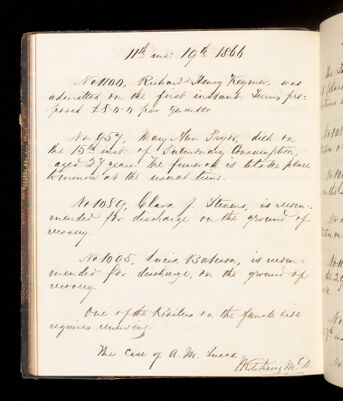 11th mo: 19th 1866
No 1100, Richard Henry Keymer, was
admitted on the first instant. Terms pro-
posed £5-0-0 per quarter
No 957, Mary Ann Pryor, died on
the 15th inst. of Pulmonary Consumption,
aged 27 years. The funeral is to take place
tomorrow at the usual time.
No 1089, Clara J. Stevens, is recom-
mended for discharge on the ground of
recovery.
No 1095, Lucia Bateson, is recom-
mended for discharge, on the ground of
recovery.
One of the Boilers on the female side
requires renewing.
The Case of A. M. Lucas.